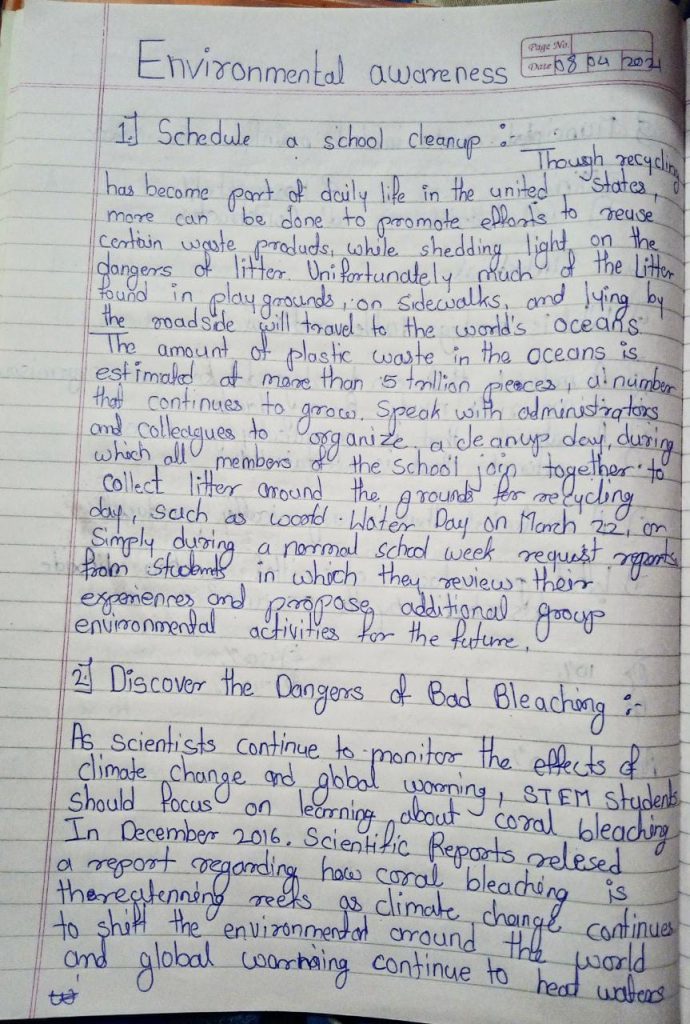 Environmental awareness
Page No.
Date 08 04 2021
1.] Schedule a school cleanup :-
Though recycling
has become part of daily life in the united states,
more can be done to promote efforts to reuse
certain waste products, while shedding light on the
dangers of litter. Unifortunately much of the Litter
found in play grounds, on sidewalks, and lying by
the roadside will travel to the world's oceans.
The amount of plastic waste in the oceans is
estimated at more than 5 trillion pieeces, a number
that continues to grow. Speak with administrators
and colleagues to organize a cleanup day, during
which all members of the school join together to
collect litter around the grounds for recycling
day, such as world Water Day on March 22, or
Simply during a normal school week request reports
from students in which they review their
experiences and propase additional group
environmental activities for the future.
2.] Discover the Dangers of Bad Bleaching :-
As scientists continue to monitor the effects of
climate change and global warning, STEM students
should focus on learning about coral bleaching
In December 2016. Scientific Reports relesed
a report regarding how coral bleaching is
thereatenning reefs as climate change continues
to shift the environmental arround the world
and global continue to heat waters